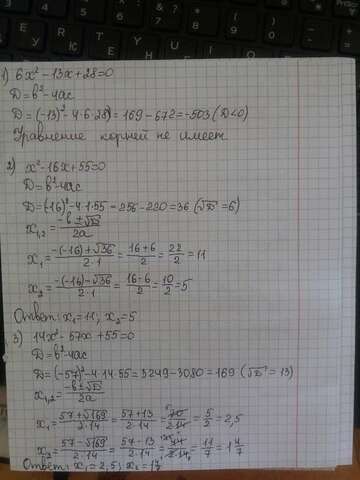 1) 6x² - 13x + 28 = 0
D = b² - 4ac
D = (-13)² - 4·6·28) = 169 - 672 = -503 (D<0)
Уравнение корней не имеет
2) x² - 16x + 55 = 0
D = b² - 4ac
D = (-16)² - 4·1·55 = 256 - 220 = 36 (√D = 6)
x₁,₂ = (-b ± √D)/2a
x₁ = (-(-16) + √36)/(2·1) = (16 + 6)/2 = 22/2 = 11
x₂ = (-(-16) - √36)/(2·1) = (16 - 6)/2 = 10/2 = 5
Ответ: x₁ = 11; x₂ = 5
3) 14x² - 57x + 55 = 0
D = b² - 4ac
D = (-57)² - 4·14·55 = 3249 - 3080 = 169 (√D = 13)
x₁,₂ = (-b ± √D)/2a
x₁ = (57 + √169)/(2·14) = (57 + 13)/(2·14) = 70/(2·14) = 5/2 = 2,5
x₂ = (57 - √169)/(2·14) = (57 - 13)/(2·14) = 44/(2·14) = 11/7 = 1 4/7
Ответ: x₁ = 2,5; x₂ = 1 4/7